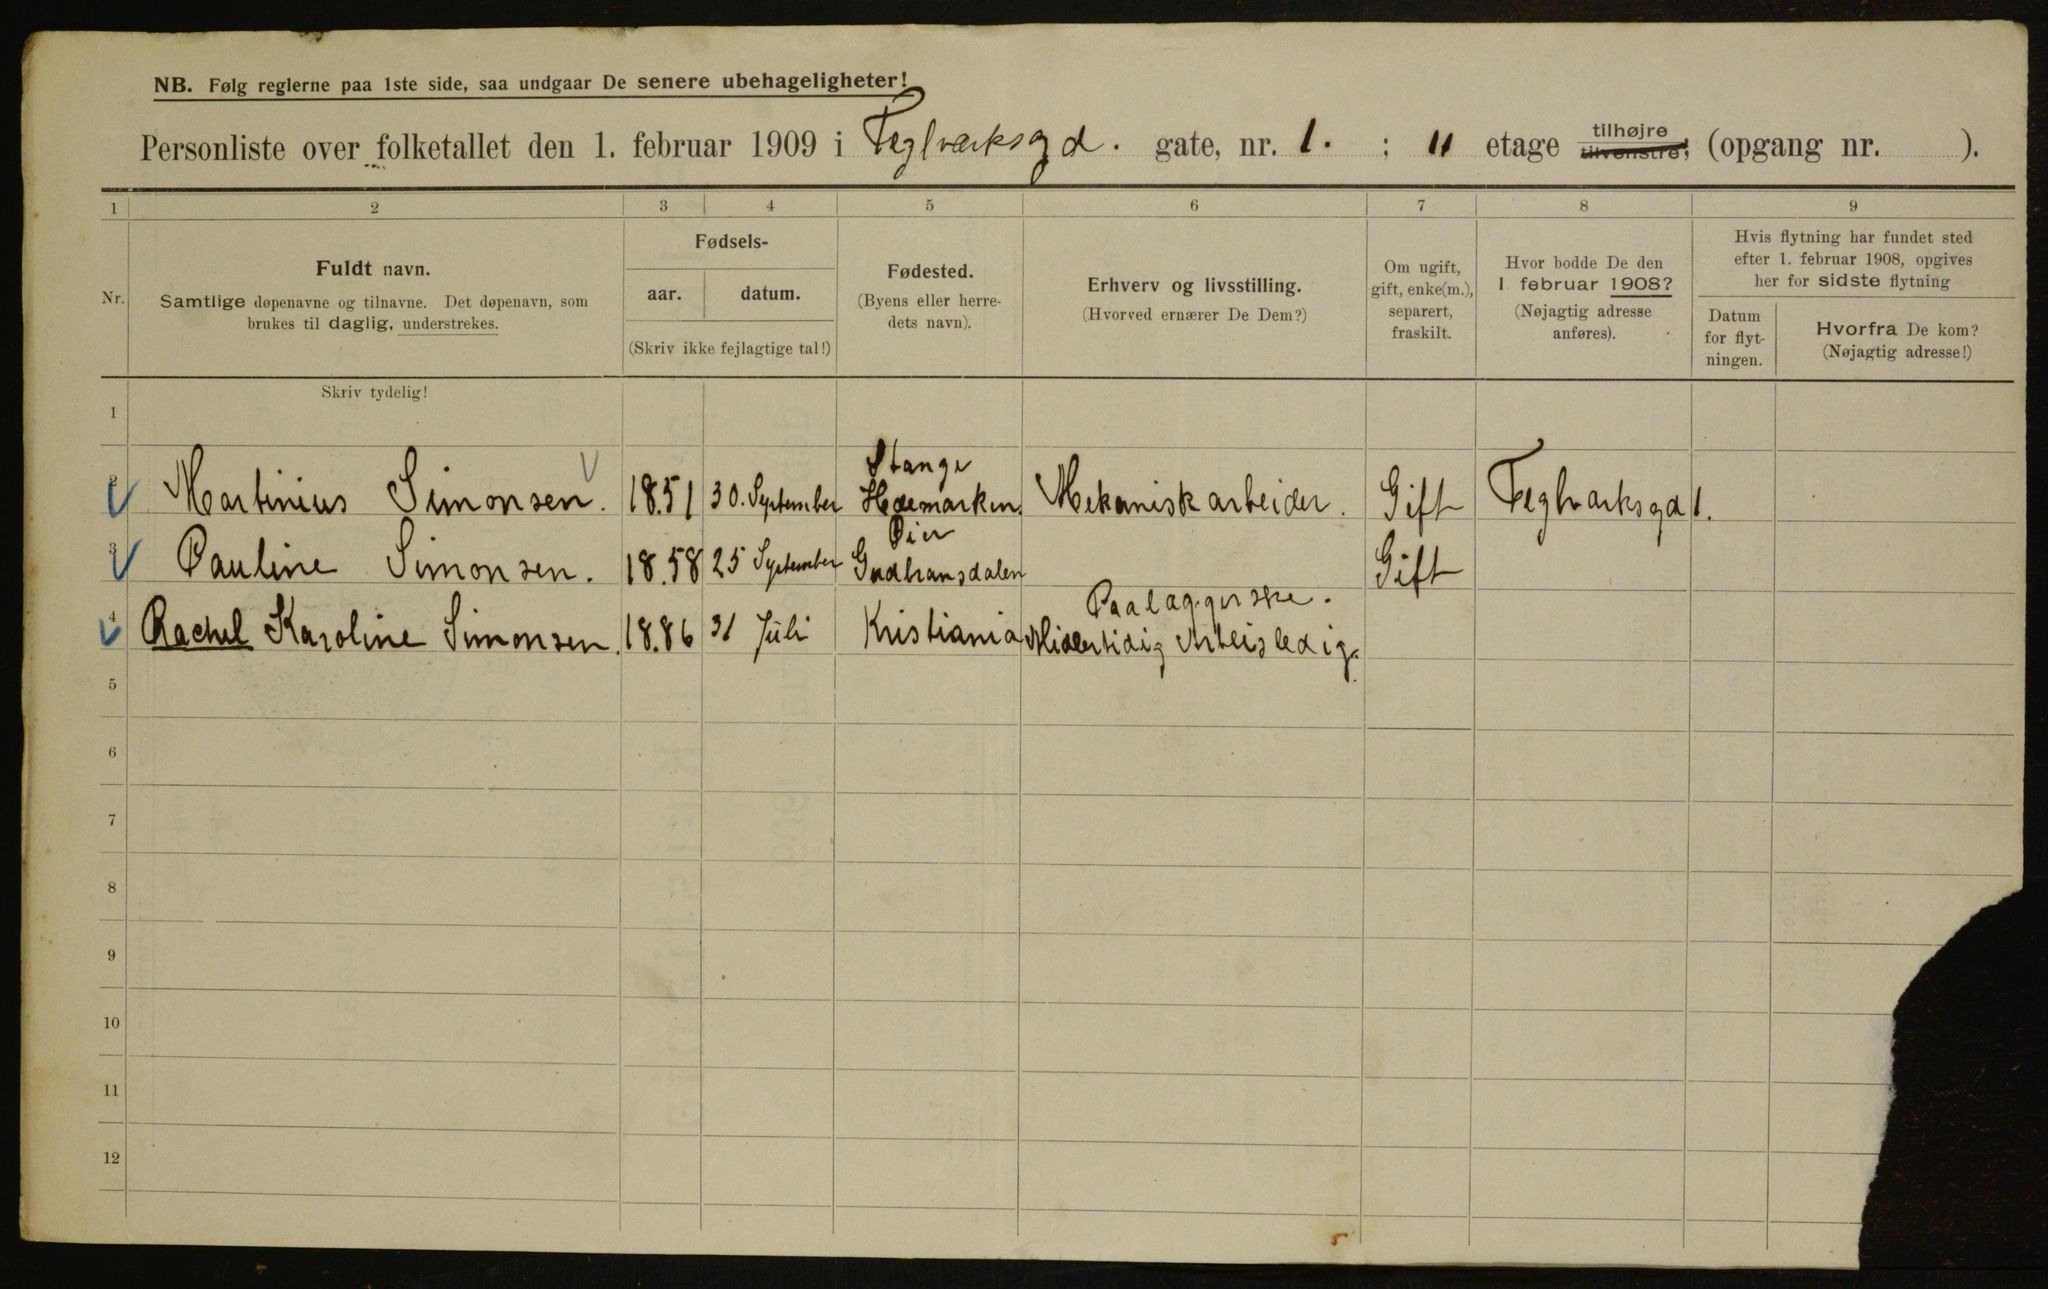 NB. Følg reglerne paa 1ste side, saa undgaar De senere ubehageligheter!
Personliste over folketallet den 1. februar 1909 i Teglværksgd. gate, nr. 1. ; 11 etage tilhøjre tilvenstre; (opgang nr. ).
1 2 3 4 5 6 7 8 9
Nr.
Fuldt navn.
Samtlige døpenavne og tilnavne. Det døpenavn, som
brukes til daglig, understrekes.
Fødsels-
aar. datum.
(Skriv ikke fejlagtige tal!)
Fødested.
(Byens eller herre-
dets navn).
Erhverv og livsstilling.
(Hvorved ernærer De Dem?)
Om ugift,
gift, enke(m.),
separert,
fraskilt.
Hvor bodde De den
1 februar 1908?
(Nøjagtig adresse
anføres).
Hvis flytning har fundet sted
efter 1. februar 1908, opgives
her for sidste flytning
Datum
for flyt-
ningen.
Hvorfra De kom?
(Nøjagtig adresse!)
Skriv tydelig!
1
Stange
2 Martinius Simonsen. 18.51 30. September Hedemarken. Mekanisk arbeider. Gift Teglvarksgd 1.
Øier
3 Pauline Simonsen. 18.58 25 September Gudbransdalen Gift
Paalæggerske.
4 Rachel Karoline Simonsen. 18.86 31 Juli Kristiania Midlertidig Arbeisledig.
5
6
7
8
9
10
11
12